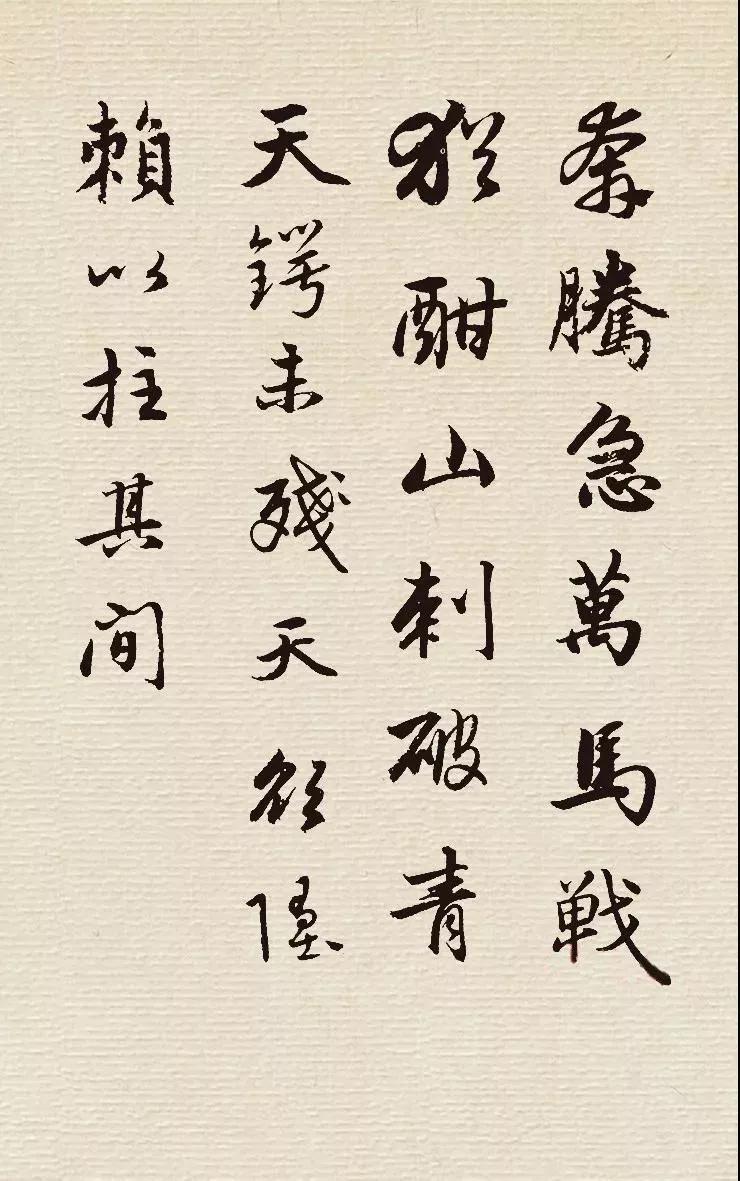 奔騰急萬馬戦
猶酣山刺破青
天鍔未殘天欲墮
賴以拄其间